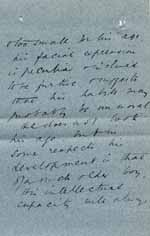 too small for his age.
his facial expression
is peculiar &
to be furtive & suggests
that his habits may
probably be immoral
He does not look
his age but in
some respects his
development is that
of a much older boy,
His intellectual
capacity will always